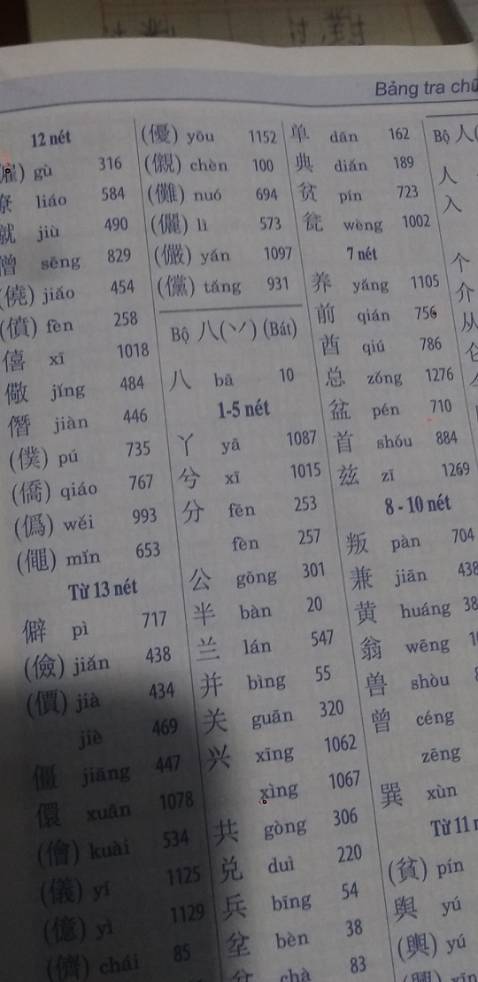 Bảng tra chữ
12 nét
gù 316
liáo 584
就 jiù 490
僧 sēng 829
(僥) jiǎo 454
(僨) fèn 258
僖 xī 1018
儆 jǐng 484
僭 jiàn 446
(僕) pú 735
(僑) qiáo 767
(僞) wěi 993
(僶) mǐn 653
Từ 13 nét
僻 pì 717
(儉) jiǎn 438
(價) jià 434
jiè 469
僵 jiāng 447
儇 xuān 1078
(儈) kuài 534
(儀) yí 1125
(億) yì 1129
(儕) chái 85
(優) yōu 1152
(儭) chèn 100
(儺) nuó 694
(儷) lì 573
(儼) yǎn 1097
(儻) tǎng 931
Bộ 八(丷) (Bát)
八 bā 10
1-5 nét
丫 yā 1087
兮 xī 1015
分 fēn 253
fèn 257
公 gōng 301
半 bàn 20
兰 lán 547
并 bìng 55
关 guān 320
兴 xīng 1062
xìng 1067
共 gòng 306
兑 duì 220
兵 bīng 54
坌 bèn 38
岔 chà 83
单 dān 162
典 diǎn 189
贫 pín 723
瓮 wèng 1002
7 nét
养 yǎng 1105
前 qián 756
酋 qiú 786
总 zǒng 1276
盆 pén 710
首 shǒu 884
兹 zī 1269
8 - 10 nét
叛 pàn 704
兼 jiān 438
黄 huáng 38
翁 wēng
兽 shòu
曾 céng
zēng
巽 xùn
Từ 11
(貧) pín
舆 yú
(輿) yú
Bộ 人
人
入
个
介
从